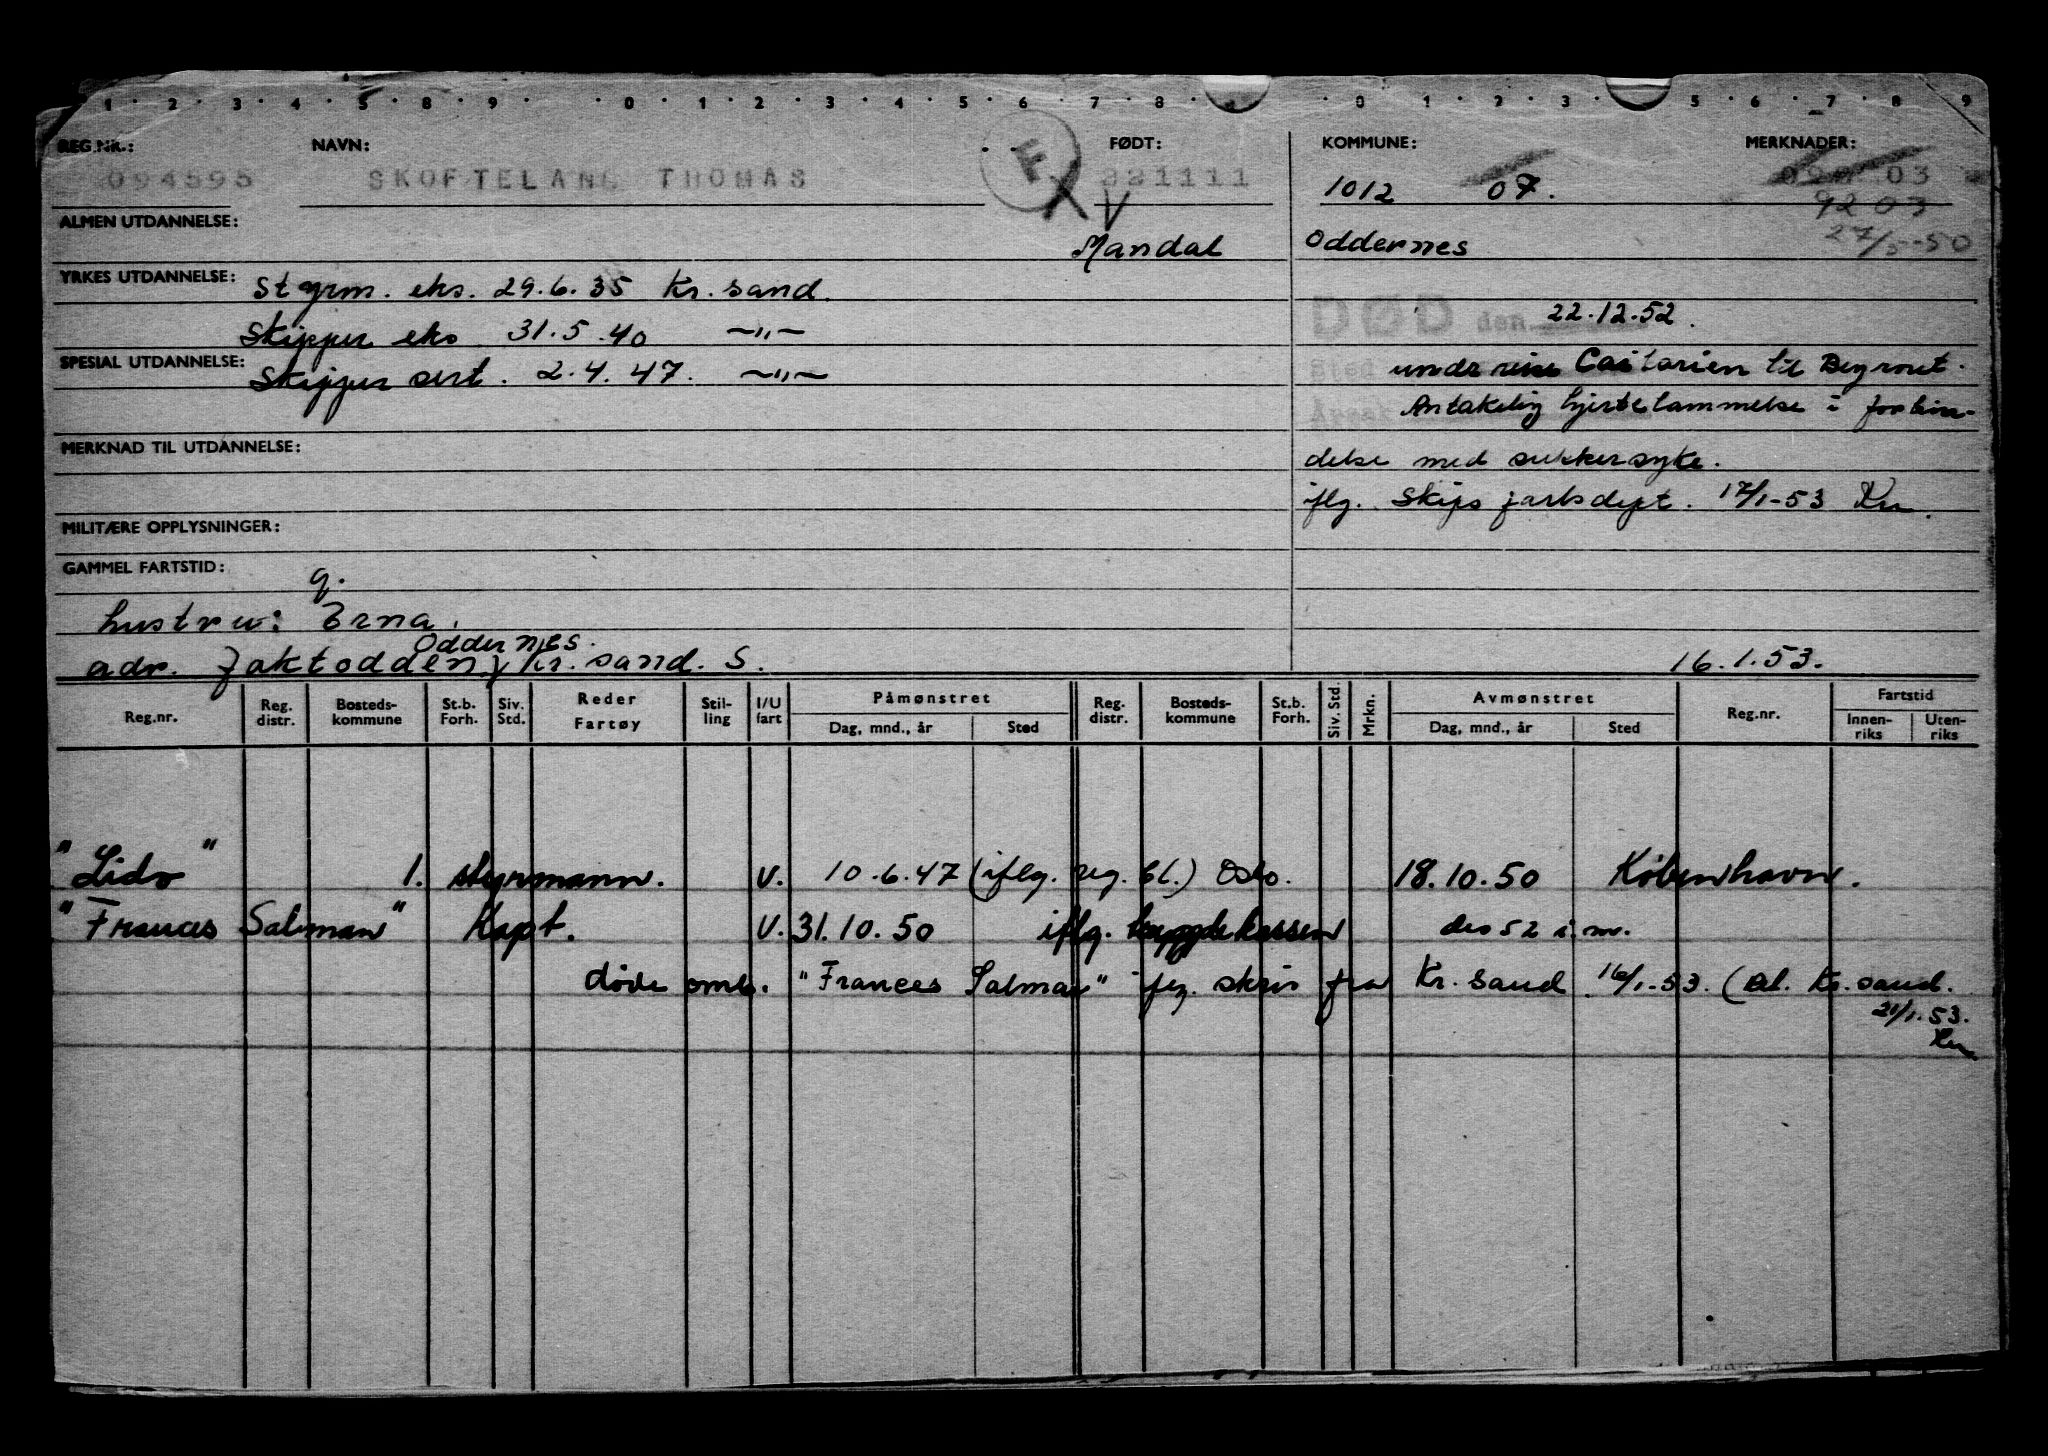 1 · 2 · 3 · 4 · 5 · 8 · 9 · · 0 · 1 · 2 · 3 · 4 · 5 · 6 · 7 · 8 · · 0 · 1 · 2 · 3 · 5 · 6 · 7 · 8 · 9
REG.NR.: NAVN: FØDT: KOMMUNE: MERKNADER:
094595 SKOFTELAND THOMAS F 221111 1012 07. 03
V 92 03
ALMEN UTDANNELSE: Mandal Oddernes 27/5-50
YRKES UTDANNELSE: Styrm. eks. 29.6.35 Kr. sand.
DØD den 22.12.52.
Skipper eks 31.5.40 —"—
SPESIAL UTDANNELSE: Skipper sert. 2.4.47. —"—
Sted under reise til Beyrout.
Årsak Antakelig hjertelammelse i forbin-
MERKNAD TIL UTDANNELSE: delse med sukkersyke.
iflg. Skipsfartsdept. 17/1-53 Kn.
MILITÆRE OPPLYSNINGER:
GAMMEL FARTSTID:
g.
hustru: Erna.
Oddernes.
adr. Kr. sand. S. 16.1.53.
Reg.nr. Reg. distr. Bosteds-kommune St.b. Forh. Siv. Std. Reder Fartøy Stil-ling I/U fart Påmønstret Dag, mnd., år Sted Reg. distr. Bosteds-kommune St.b. Forh. Siv. Std. Mrkn. Avmønstret Dag, mnd., år Sted Reg.nr. Fartstid Innen-riks Uten-riks
"Lido" 1. styrmann. V. 10.6.47 (iflg. reg. bl.) Oslo. 18.10.50 København.
"Frances Salman" Kapt. V. 31.10.50 iflg. trygdekassen des 52 i.m.
døde omb. "Frances Salman" ifg. skriv fra Kr. sand 16/1-53. (Bl. Kr. sand.
21/1.53.
Kn